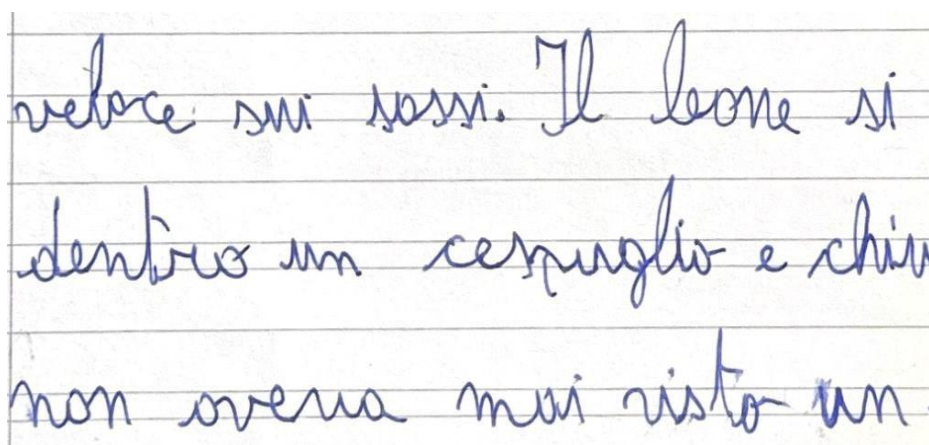 veloce sui sassi. Il leone si
dentro un cespuglio e chiu
non aveva mai visto un